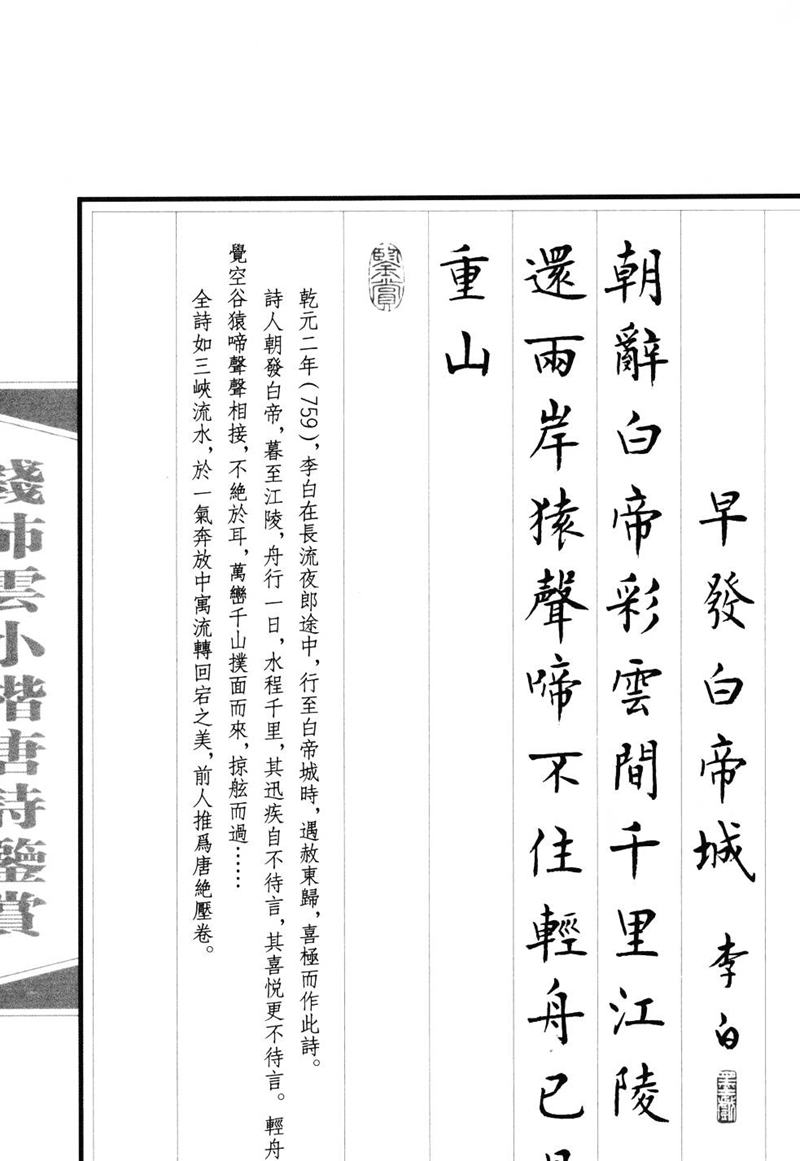 早發白帝城 李白
朝辭白帝彩雲間千里江陵
還兩岸猿聲啼不住輕舟已
重山
鑒賞
乾元二年(759)，李白在長流夜郎途中，行至白帝城時，遇赦東歸，喜極而作此詩。
詩人朝發白帝，暮至江陵，舟行一日，水程千里，其迅疾自不待言，其喜悦更不待言。輕舟
覺空谷猿啼聲聲相接，不絶於耳，萬巒千山撲面而來，掠舷而過……
全詩如三峽流水，於一氣奔放中寓流轉回宕之美，前人推爲唐絶壓卷。
錢沛雲小楷唐詩鑒賞